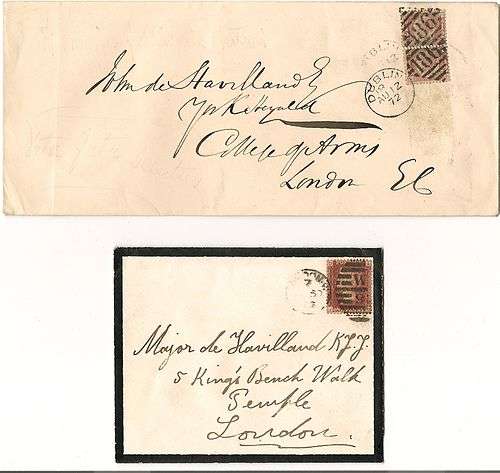 John de Havilland Esq
York Herald
College of Arms
London EC
DUBLIN
AU 12
72
186
186
Major de Havilland K.J.J.
5 King's Bench Walk
Temple
London.
W